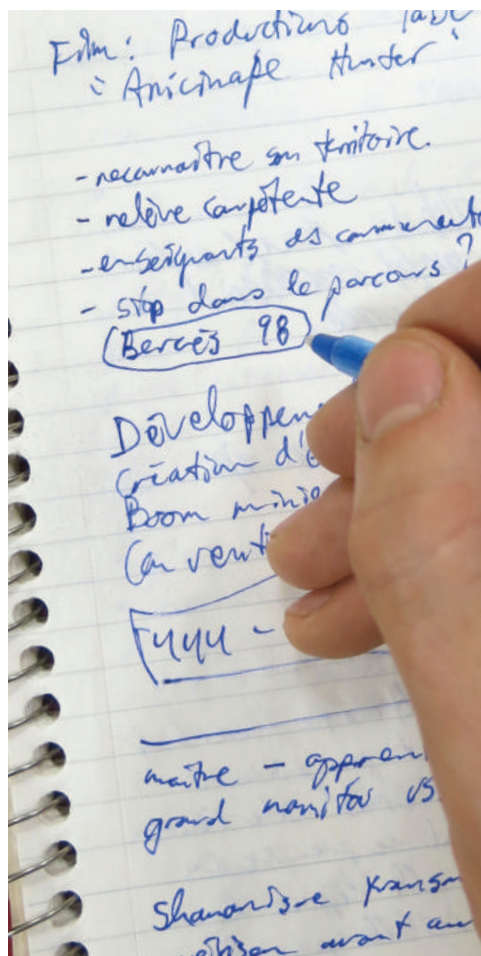 Film: Productions
"Anicinape Hunter"
- reconnaître son territoire.
- relève compétente
- enseignants des
- stop dans le parcours ?
Bercés 98
Développem
Création d'é
Boom mini
Conventi
444 -
maître - appren
grand manitou vs.
Shamanisme
avant